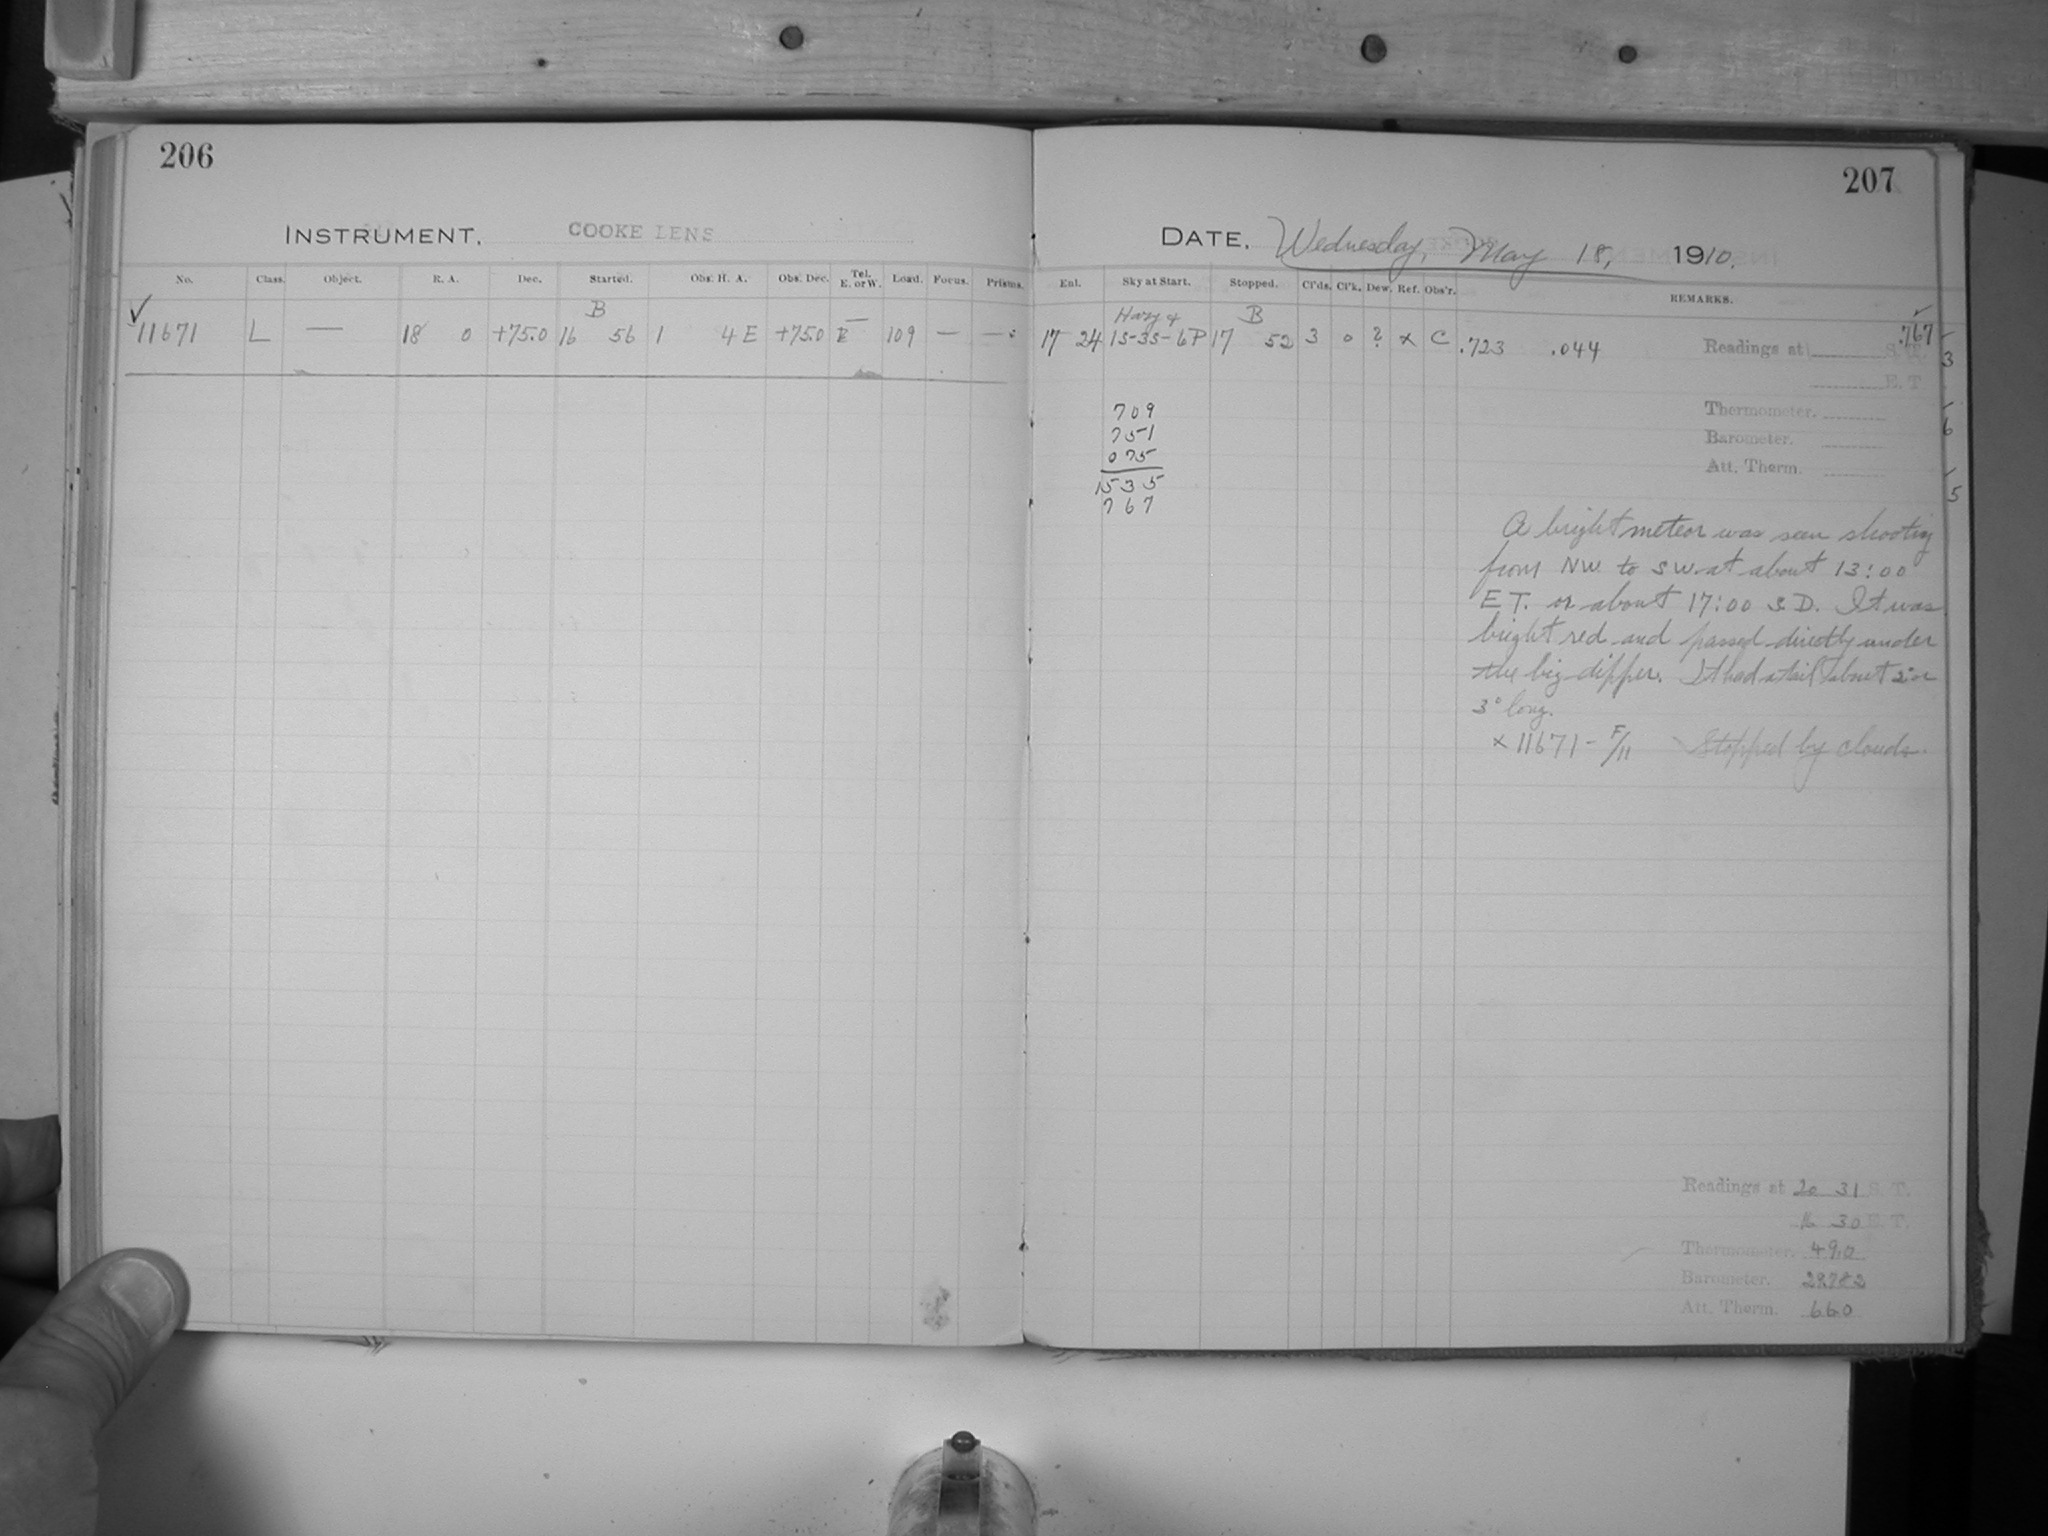 206
INSTRUMENT, COOKE LENS
No. Class. Object. R. A. Dec. Started. Obs. H. A. Obs. Dec. Tel. E. or W. Load. Focus. Prisms.
B
✓ 11671 L — 18 0 +75.0 16 56 1 4 E +75.0 E 109 — —
207
DATE, Wednesday, May 18, 1910.
Enl. Sky at Start. Stopped. Cl'ds. Cl'k. Dew. Ref. Obs'r. REMARKS.
Hazy + B
17 24 15-35-6P 17 52 3 0 ? x C .723 .044 .767
Readings at S. T.
E. T
709
Thermometer.
751
Barometer.
075
Att. Therm.
1535
767
A bright meteor was seen shooting
from NW. to SW. at about 13:00
E T. or about 17:00 S.D. It was
bright red and passed directly under
the big dipper. It had a tail about 2° or
3° long.
x 11671 - F/11 Stopped by clouds.
Readings at 20 31 S. T.
16 30 E. T.
Thermometer. 49.0
Barometer.
Att. Therm. 66.0